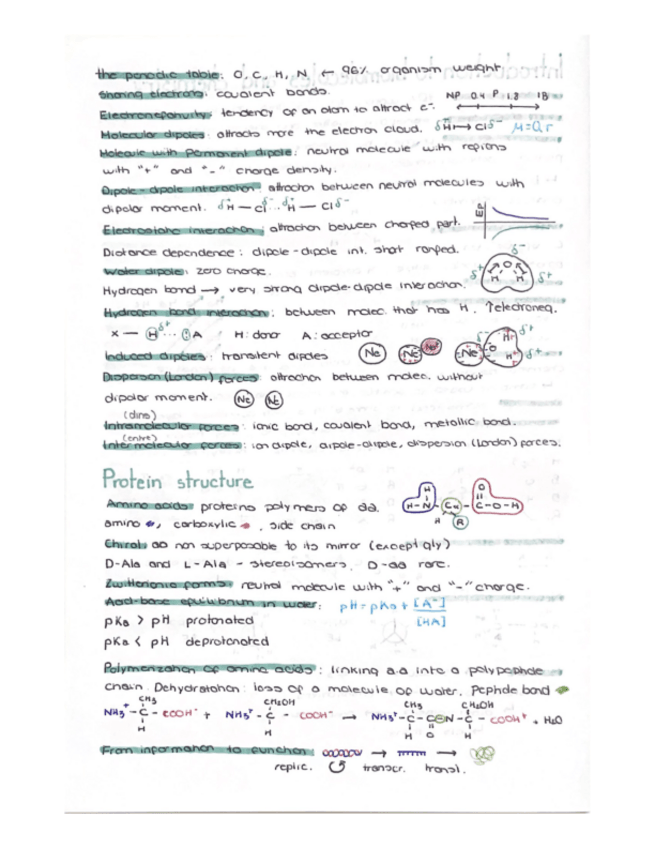 the periodic table: O, C, H, N ← 96% organism weight
Sharing electrons: covalent bonds.
Electronegativity: tendency of an atom to attract e⁻. NP 0.4 P 1.8 IB
Molecular dipoles: attracts more the electron cloud. δ⁺H ↦ Clδ⁻ μ=Q.r
Molecule with Permanent dipole: neutral molecule with regions
with "+" and "-" charge density.
Dipole-dipole interaction: attraction between neutral molecules with
dipolar moment. δ⁺H — Cl δ⁻... δ⁺H — Cl δ⁻ EP
Electrostatic interaction: attraction between charged part.
Distance dependence: dipole-dipole int. short ranged. δ⁻
Water dipole: zero charge. δ⁺ O H H δ⁺
Hydrogen bond → very strong dipole-dipole interaction.
Hydrogen bond interaction: between molec. that has H. ↑electroneg.
X — H δ⁺ ... :A H: donor A: acceptor
Induced dipoles: transient dipoles Ne Ne Na⁺ Ne δ⁻ O H⁺ H⁺ δ⁺ δ⁺
Dispersion (London) forces: attraction between molec. without
dipolar moment. Ne Ne
(dins)
Intramolecular forces: ionic bond, covalent bond, metallic bond.
(entre)
Intermolecular forces: ion dipole, dipole-dipole, dispersion (London) forces.
Protein structure
Amino acids: proteins polymers of aa. H-N-Cα-C-O-H H O H R
amino, carboxylic, side chain
Chiral: aa non superposable to its mirror (except gly)
D-Ala and L-Ala - stereoisomers. D-aa rare.
Zwitterionic forms: neutral molecule with "+" and "-" charge.
Acid-base equilibrium in water: pH = pKa + [A⁻]
[HA]
pKa > pH protonated
pKa < pH deprotonated
Polymerization of amino acids: linking a.a into a polypeptide
chain. Dehydratation: loss of a molecule of water. Peptide bond
CH₃ CH₂OH CH₃ CH₂OH
NH₃⁺ - C - COOH⁻ + NH₃⁺ - C - COOH⁻ → NH₃⁺ - C - C=N - C - COOH⁺ + H₂O
H H H O H
From information to function: → →
replic. transcr. transl.